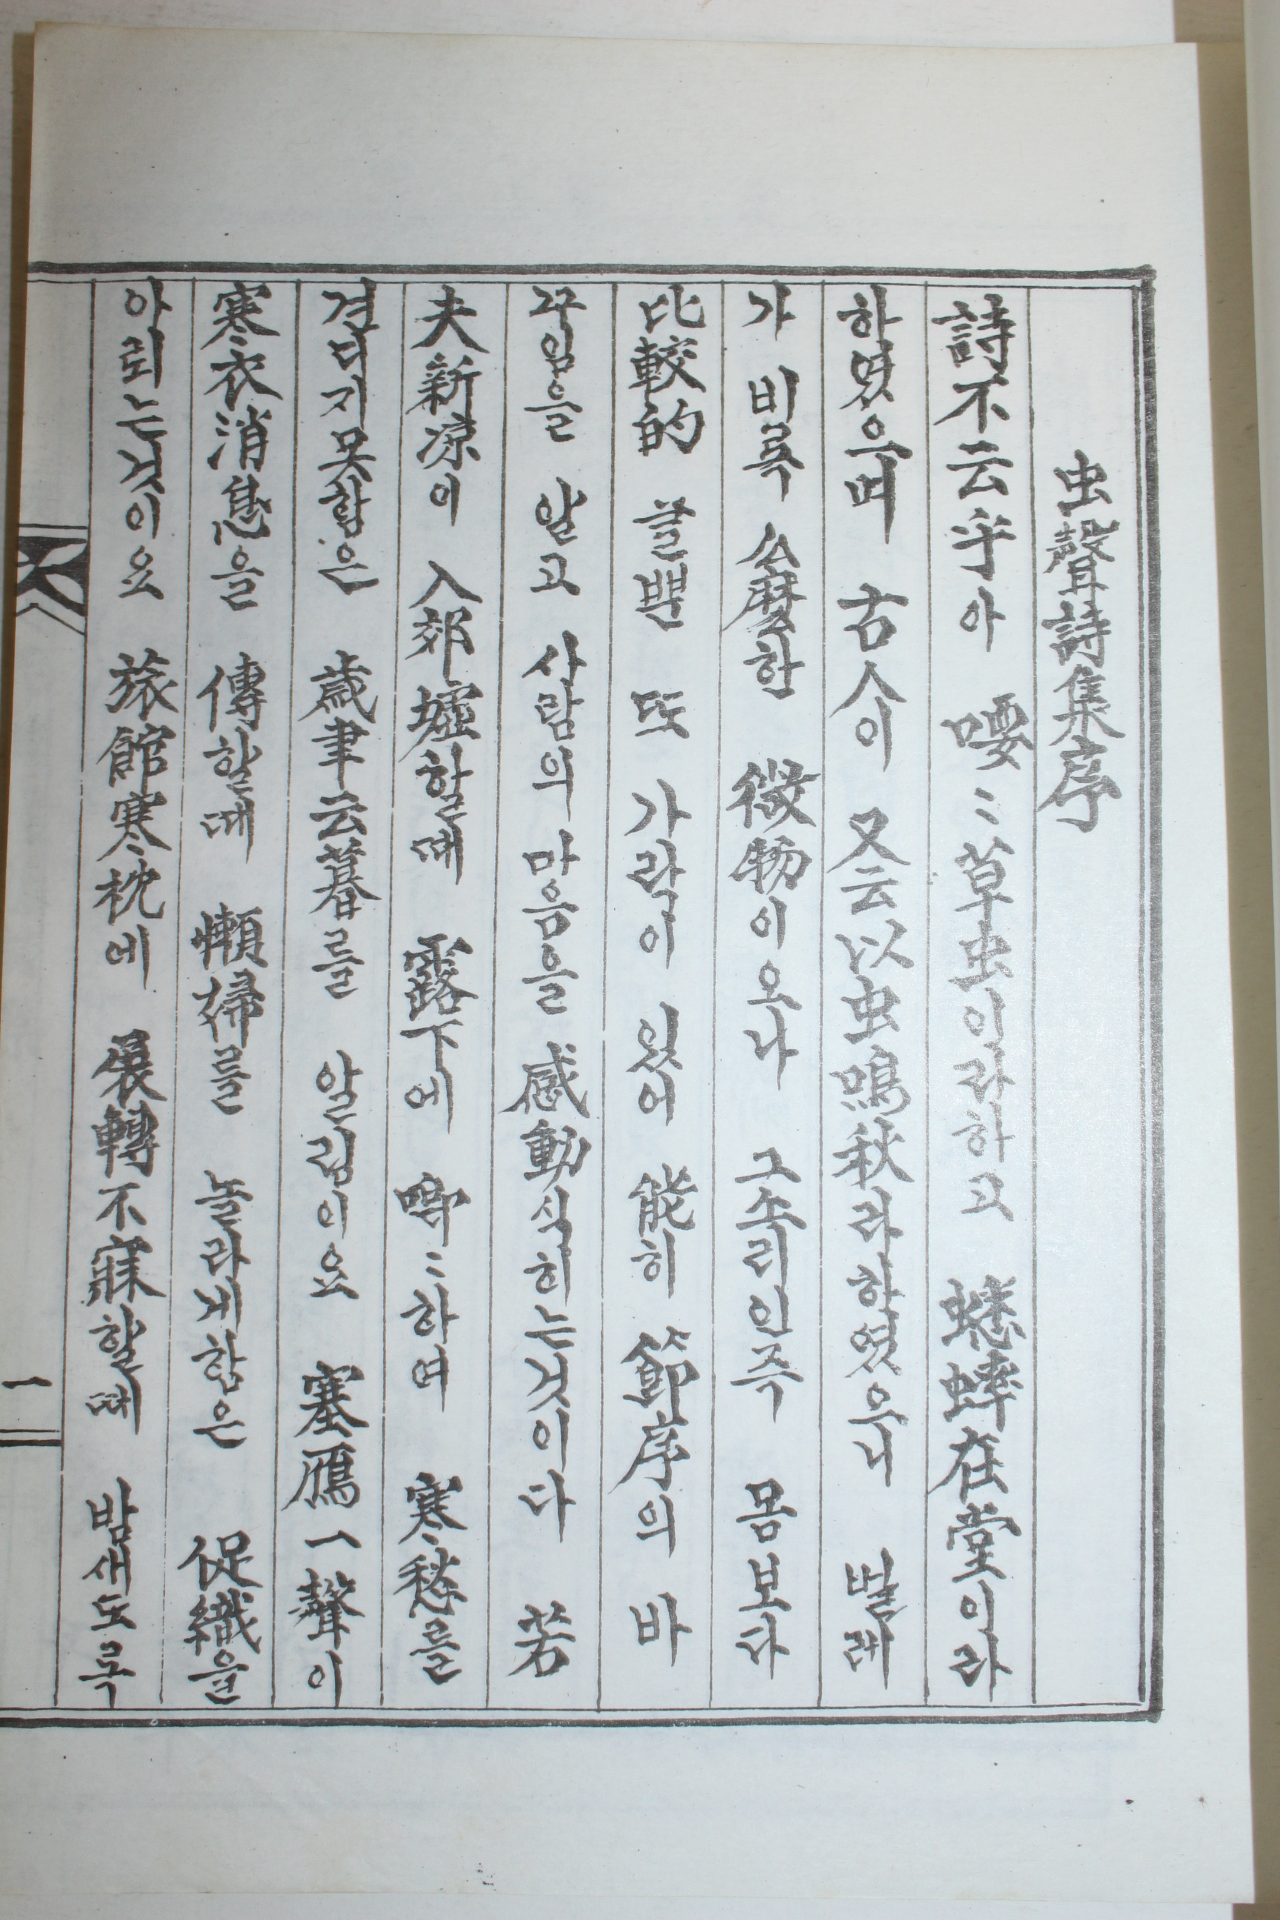 虫聲詩集序
詩不云乎아 喓〻草虫이라하고 蟋蟀在堂이라
하였으며 古人이 又云以虫鳴秋라하였으니 벌레
가 비록 么麽한 微物이오나 그소리인즉 몸보다
比較的 클뿐 또 가락이 있어 能히 節序의 바
꾸임을 알고 사람의 마음을 感動식히는것이다 若
夫新凉이 入郊墟할때 露下에 喞〻하여 寒愁를
견디지못함은 歲聿云暮를 알림이요 塞鴈一聲이
寒衣消息을 傳할때 懶婦를 놀라게함은 促織을
아뢰는것이요 旅館寒枕에 展轉不寐할때 밤새도록
一